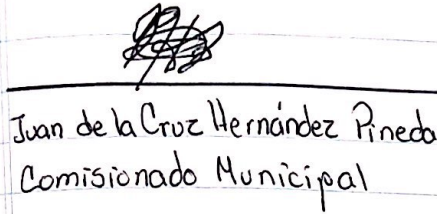 Juan de la Cruz Hernández Pineda
Comisionado Municipal